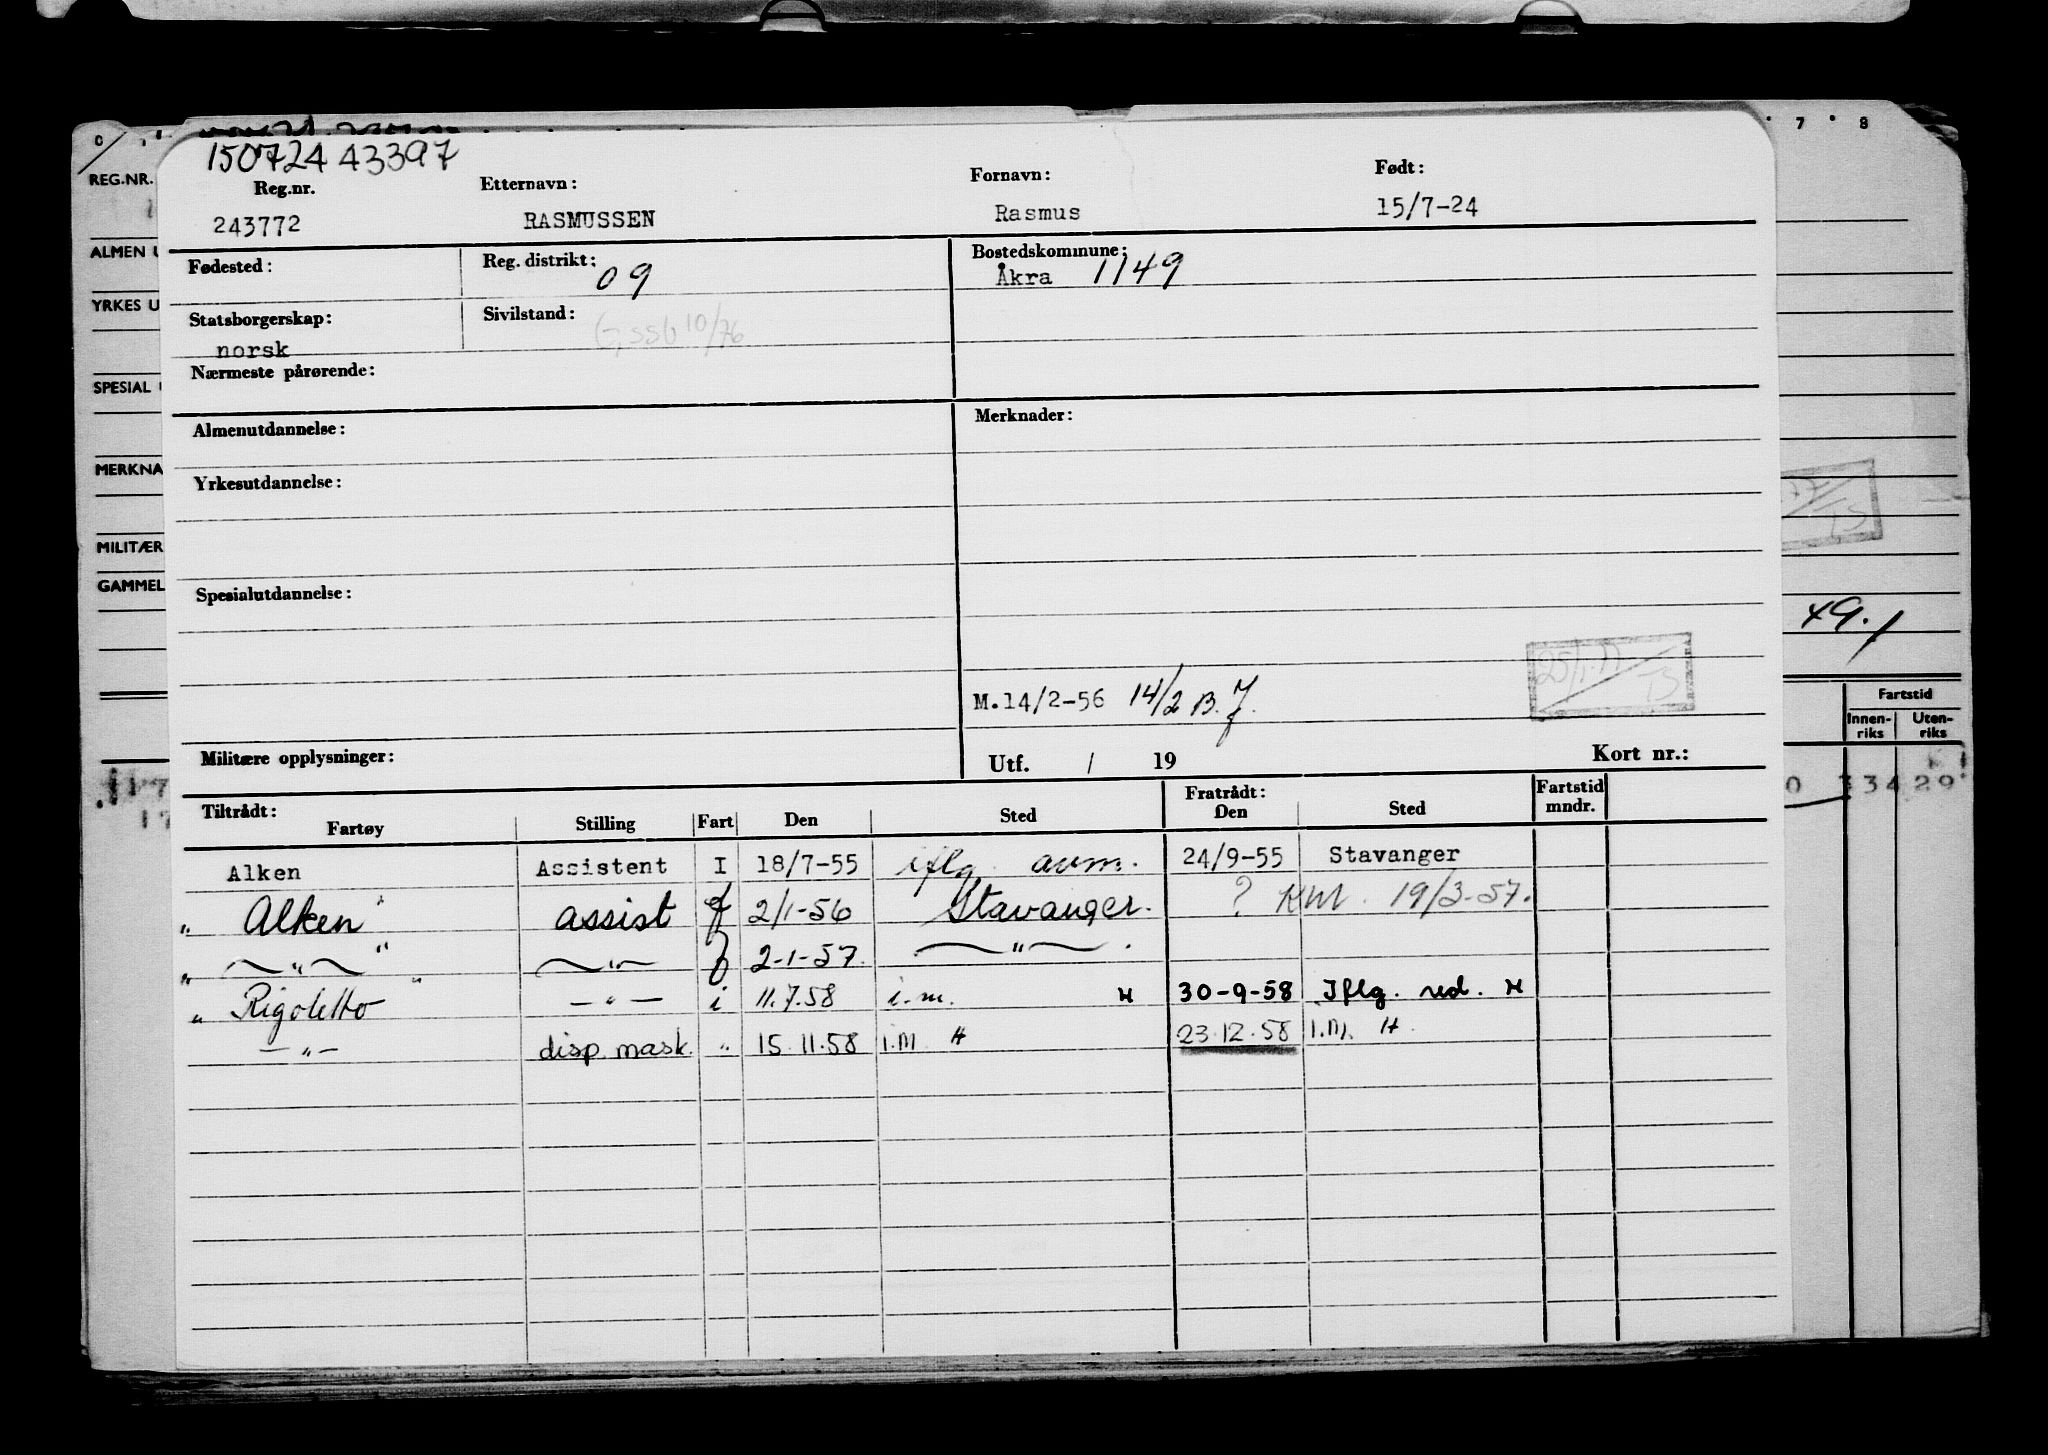 150724 43397
Reg.nr. Etternavn: Fornavn: Født:
243772 RASMUSSEN Rasmus 15/7-24
Fødested: Reg. distrikt: 09 Bostedskommune:
Åkra 1149
Statsborgerskap: Sivilstand: G, ssb 10/76
norsk
Nærmeste pårørende:
Almenutdannelse: Merknader:
Yrkesutdannelse:
Spesialutdannelse:
M.14/2-56 14/2 B.J.
Militære opplysninger: Utf. / 19 Kort nr.:
Tiltrådt: Fratrådt: Fartstid
Fartøy Stilling Fart Den Sted Den Sted mndr.
Alken Assistent I 18/7-55 iflg. avm. 24/9-55 Stavanger
" Alken " assist 2/1-56 Stavanger. ? 19/3-57.
" — " — " — " — 2-1-57. — " — .
" Rigoletto " — " — i 11.7.58 i.m. H 30-9-58 Iflg. red. H
— " — disp. mask. " 15.11.58 i.m H 23.12.58 i.m. H.
REG.NR.
ALMEN U
YRKES U
SPESIAL
MERKNA
MILITÆR
GAMMEL
7 8
25/1-77
TS
TS
49.1
Fartstid
Innen-
riks
Uten-
riks
0 33429